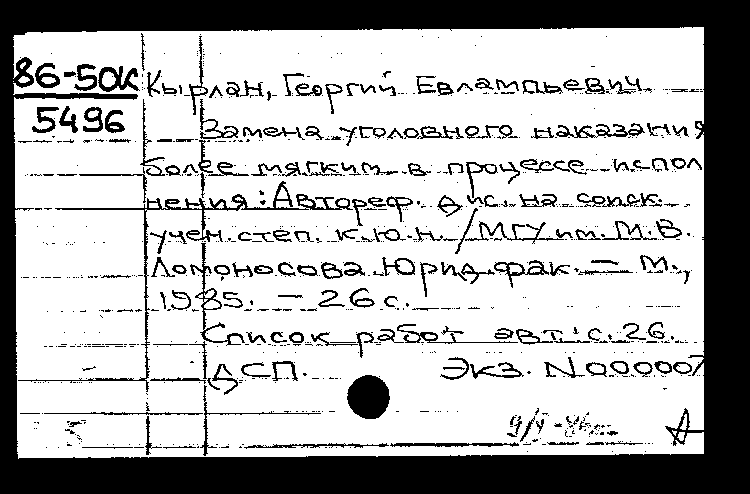 86-50к
5496
Кырлан, Георгий Евлампьевич
Замена уголовного наказания
более мягким в процессе испол
нения: Автореф. дис. на соиск.
учен. степ. к.ю.н. /МГУ им. М.В.
Ломоносова. Юрид. фак. — М.,
1985. — 26 с.
Список работ авт.: с. 26.
ДСП. Экз. N 000007